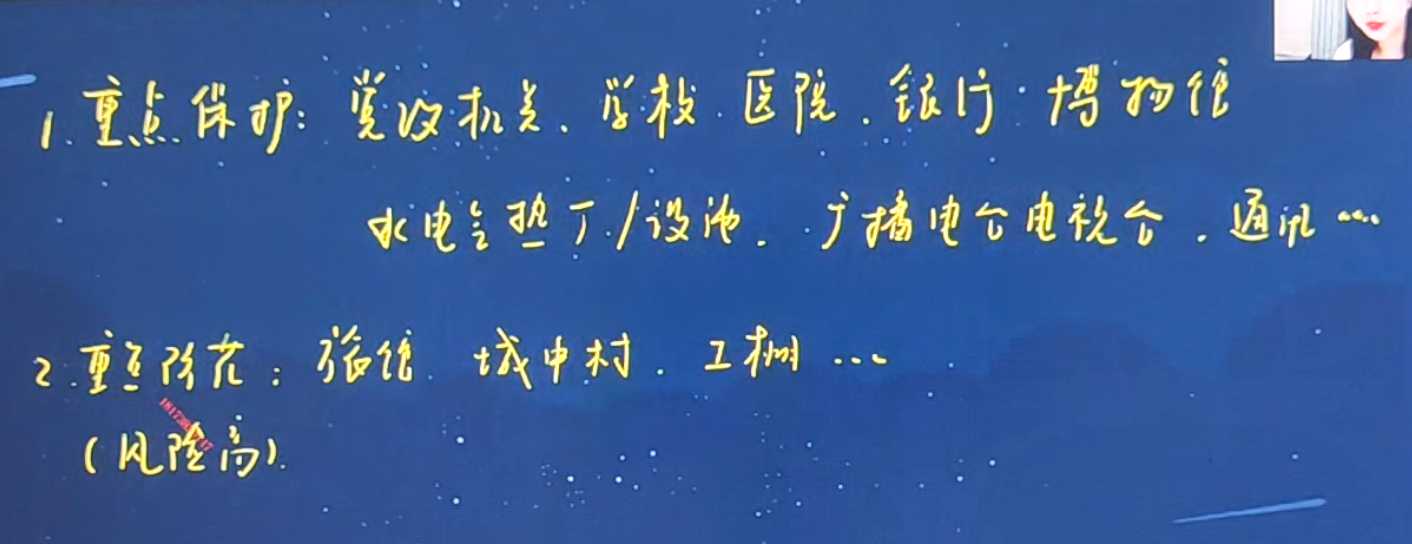 1.重点保护：党政机关、学校.医院.银行.博物馆
水电气热厂/设施.广播电台电视台.通讯……
2.重点防范：旅馆.城中村.工棚…
（风险高）.